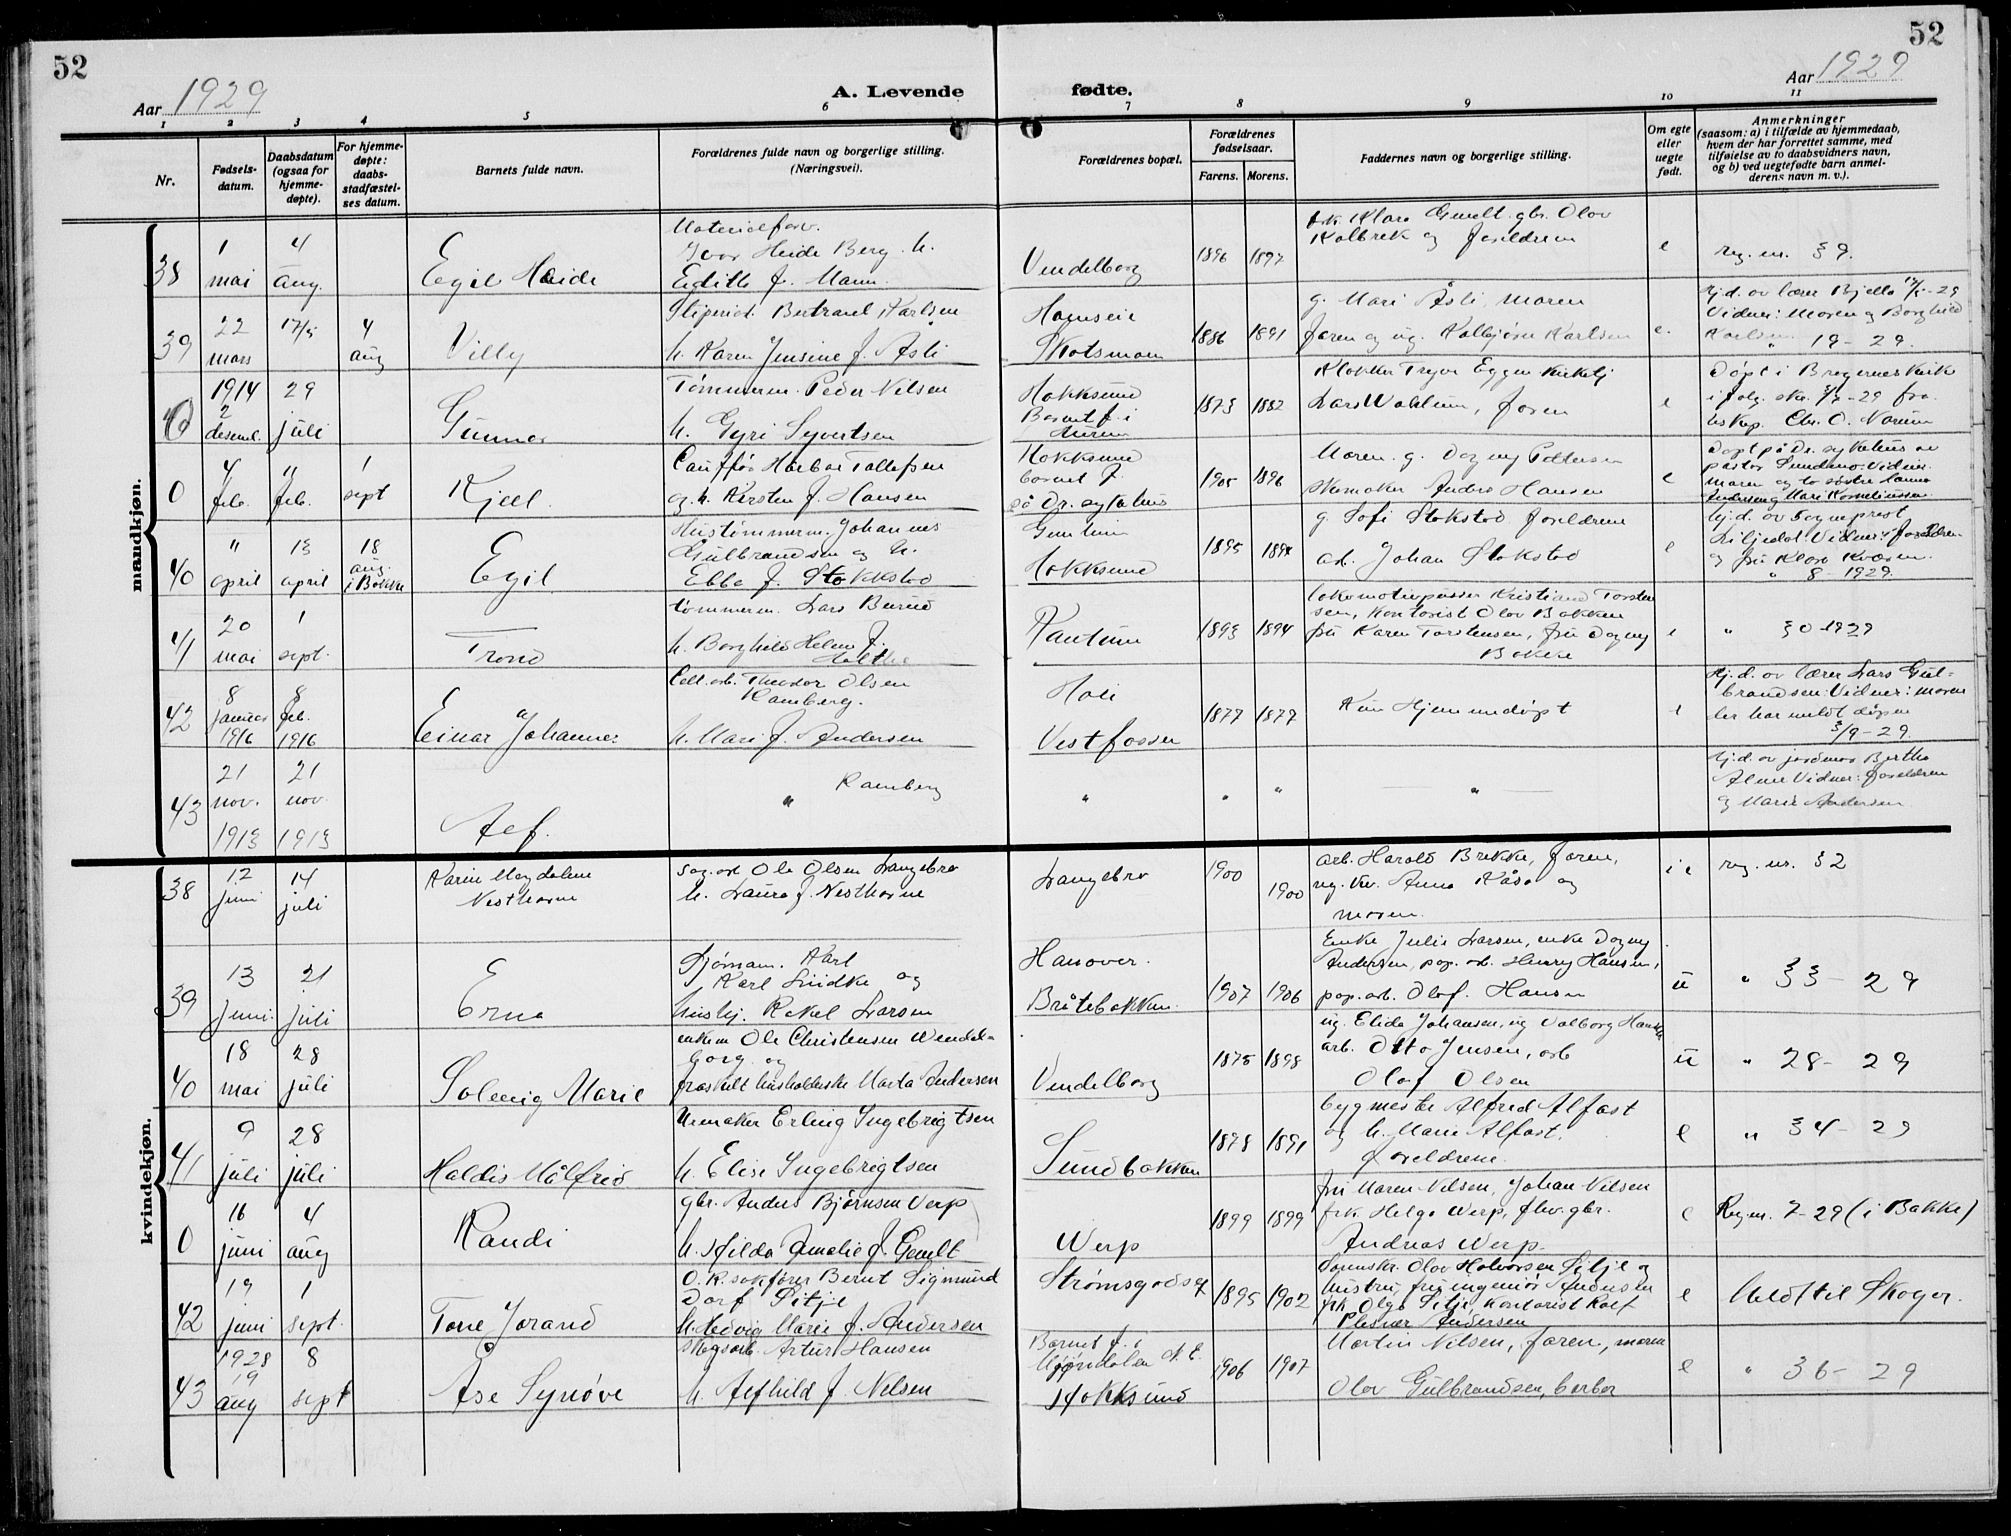 52
52
Aar 1929
A. Levende
fødte.
Aar 1929
1 2 3 4 5 6 7 8 9 10 11
Nr.
Fødsels-
datum.
Daabsdatum
(ogsaa for
hjemme-
døpte).
For hjemme-
døpte:
daabs-
stadfæstel-
ses datum.
Barnets fulde navn.
Forældrenes fulde navn og borgerlige stilling.
(Næringsvei).
Forældrenes bopæl.
Forældrenes
fødselsaar.
Farens. Morens.
Faddernes navn og borgerlige stilling.
Om egte
eller
uegte
født.
Anmerkninger
(saasom: a) i tilfælde av hjemmedaab,
hvem der har forrettet samme, med
tilføielse av to daabsvidners navn,
og b) ved uegtefødte barn anmel-
derens navn m. v.).
mandkjøn.
38
1
mai
4
aug.
Egil Heide
Materialforv.
Ivar Heide Berg. h.
Edith f. Mann.
Vendelborg
1896 1897
Kolbrek og foreldrene
e
reg. nr. 39.
39
22
mars
17/5
4
aug
Villy
Bertrand Karlsen
h. Karen Jensine f. Åsli
Skotsmoen
1886 1891
g. Mari Åsli, moren
faren og ug. Kolbjørn Karlsen
e.
Hj.d. av lærer Bjella 17/5-29
Vidner: Moren og Borghild
Karlsen
" 19-29.
0
1914
2
desemb.
29
juli
Gunnar
Tømmerm. Peder Nilsen
h. Gyri Syvertsen
Hokksund
Barnet f. i
1873 1882
Klokker Trygve Eggen
faren
e
Døpt i Bragernes kirke
0
4
feb.
11
feb.
1
sept
Kjell
Harbor Tollefsen
og h. Kirsten f. Hansen
Hokksund
barnet f.
på Dr. sykehus
1905 1896
Moren. g. Dagny Pettersen
skomaker Hansen
e
Døpt på Dr. sykehus av
pastor
40
11
april
13
april
18
aug.
i Bakke
Egil
Hustømmerm. Johannes
Gulbrandsen og h.
Ebba f. Stokkstad
Hokksund
1895
g. Sofi Stokstad foreldrene
arb. Johan Stokstad
e
Hj.d. av sogneprest
Liljedal Vidner: foreldrene
og fru Klara
" 8-1929.
41
20
mai
1
sept.
Trond
tømmerm. Lars
h. Borghild Helene f.
Holthe
1893 1894
lokomotivpusser Kristian Torsten
sen, kontorist Olav Bakken
fru Karen Torstensen, fru Dagny
Bakke
e
" 30-1929
42
8
januar
1916
8
feb.
1916
Einar Johannes
Cell.arb. Theodor Olsen
Ramberg.
h. Mari f. Andersen
Vestfossen
1877 1877
Kun Hjemmedøpt
e
Hj.d. av lærer Lars Gul-
brandsen: Vidner: Moren
der har meldt dåpen
3/9-29.
43
21
nov.
1913
21
nov.
1913
Alf.
" Ramberg
" " "
— " —
Hj.d. av jordmor Bertha
Vidner: foreldrene
og Marie Andersen
kvindekjøn.
38
12
juni
14
juli
Karin Magdalene
Nesthorne
sag.arb Ole Olsen Langebro
h. Laura f. Nesthorne
Langebro
1900
1900
arb. Harald Brekke, faren,
Anna Råsa og
moren.
e
reg. nr. 32
39
13
juni.
21
juli
Erna
Sjøman. Karl
Karl Lindke og
hushj. Rakel Larsen
Hanover.
Bråtebakken.
1907 1906
Enke Julie Larsen, enke Dagny
Andersen, pap. arb. Henry Hansen,
pap. arb. Olaf. Hansen
u
" 33-29
40
18
mai
28
juli
Solveig Marie
enkem Ole Christensen Wendel-
borg og
fraskilt husholderske Marta Andersen
Vendelborg
1875 1898
ug. Elida Johansen, ug Valborg
arb. Otto Jensen, arb
Olaf Olsen
u
" 28-29
41
9
juli
28
juli
Haldis Målfrid
Urmaker Erling Ingebrigtsen
h. Elise Ingebrigtsen
Sundbakken
1878 1891
bygmester Alfred Alfast
og h. Marie Alfast.
foreldrene.
e
" 34-29
0
16
juni
4
aug
Randi
gbr. Anders Bjørnsen Werp
h. Hilda Amalie f. Gunlt
Werp
1899 1899
fru Maren Nilsen, Johan Nilsen
frk Helga Werp, fhv. gbr.
Andreas Werp.
e
Reg nr. 7-29 (i Bakke)
42
19
juni
1
sept.
Tone Jorand
O.R.sakfører Bernt Sigmund
Dorf Litje
h. Hedvig Marie f. Andersen
Strømsgodsgt
1895 1902
Olav Halvorsen Litje og
hustru, fru ingeniør Andersen
frk Olga Litje, kontorist Rolf
Plesner Andersen
e
Meldt til Skoger.
43
1928
19
aug
8
sept
Åse Synøve
Skogsarb. Artur Hansen
h. Alfhild f. Nilsen
Barnet f. i
Mjøndalen N. E.
Hokksund
1906 1907
Martin Nilsen, faren, moren
Olav Gulbrandsen, barber
e
" 36-29